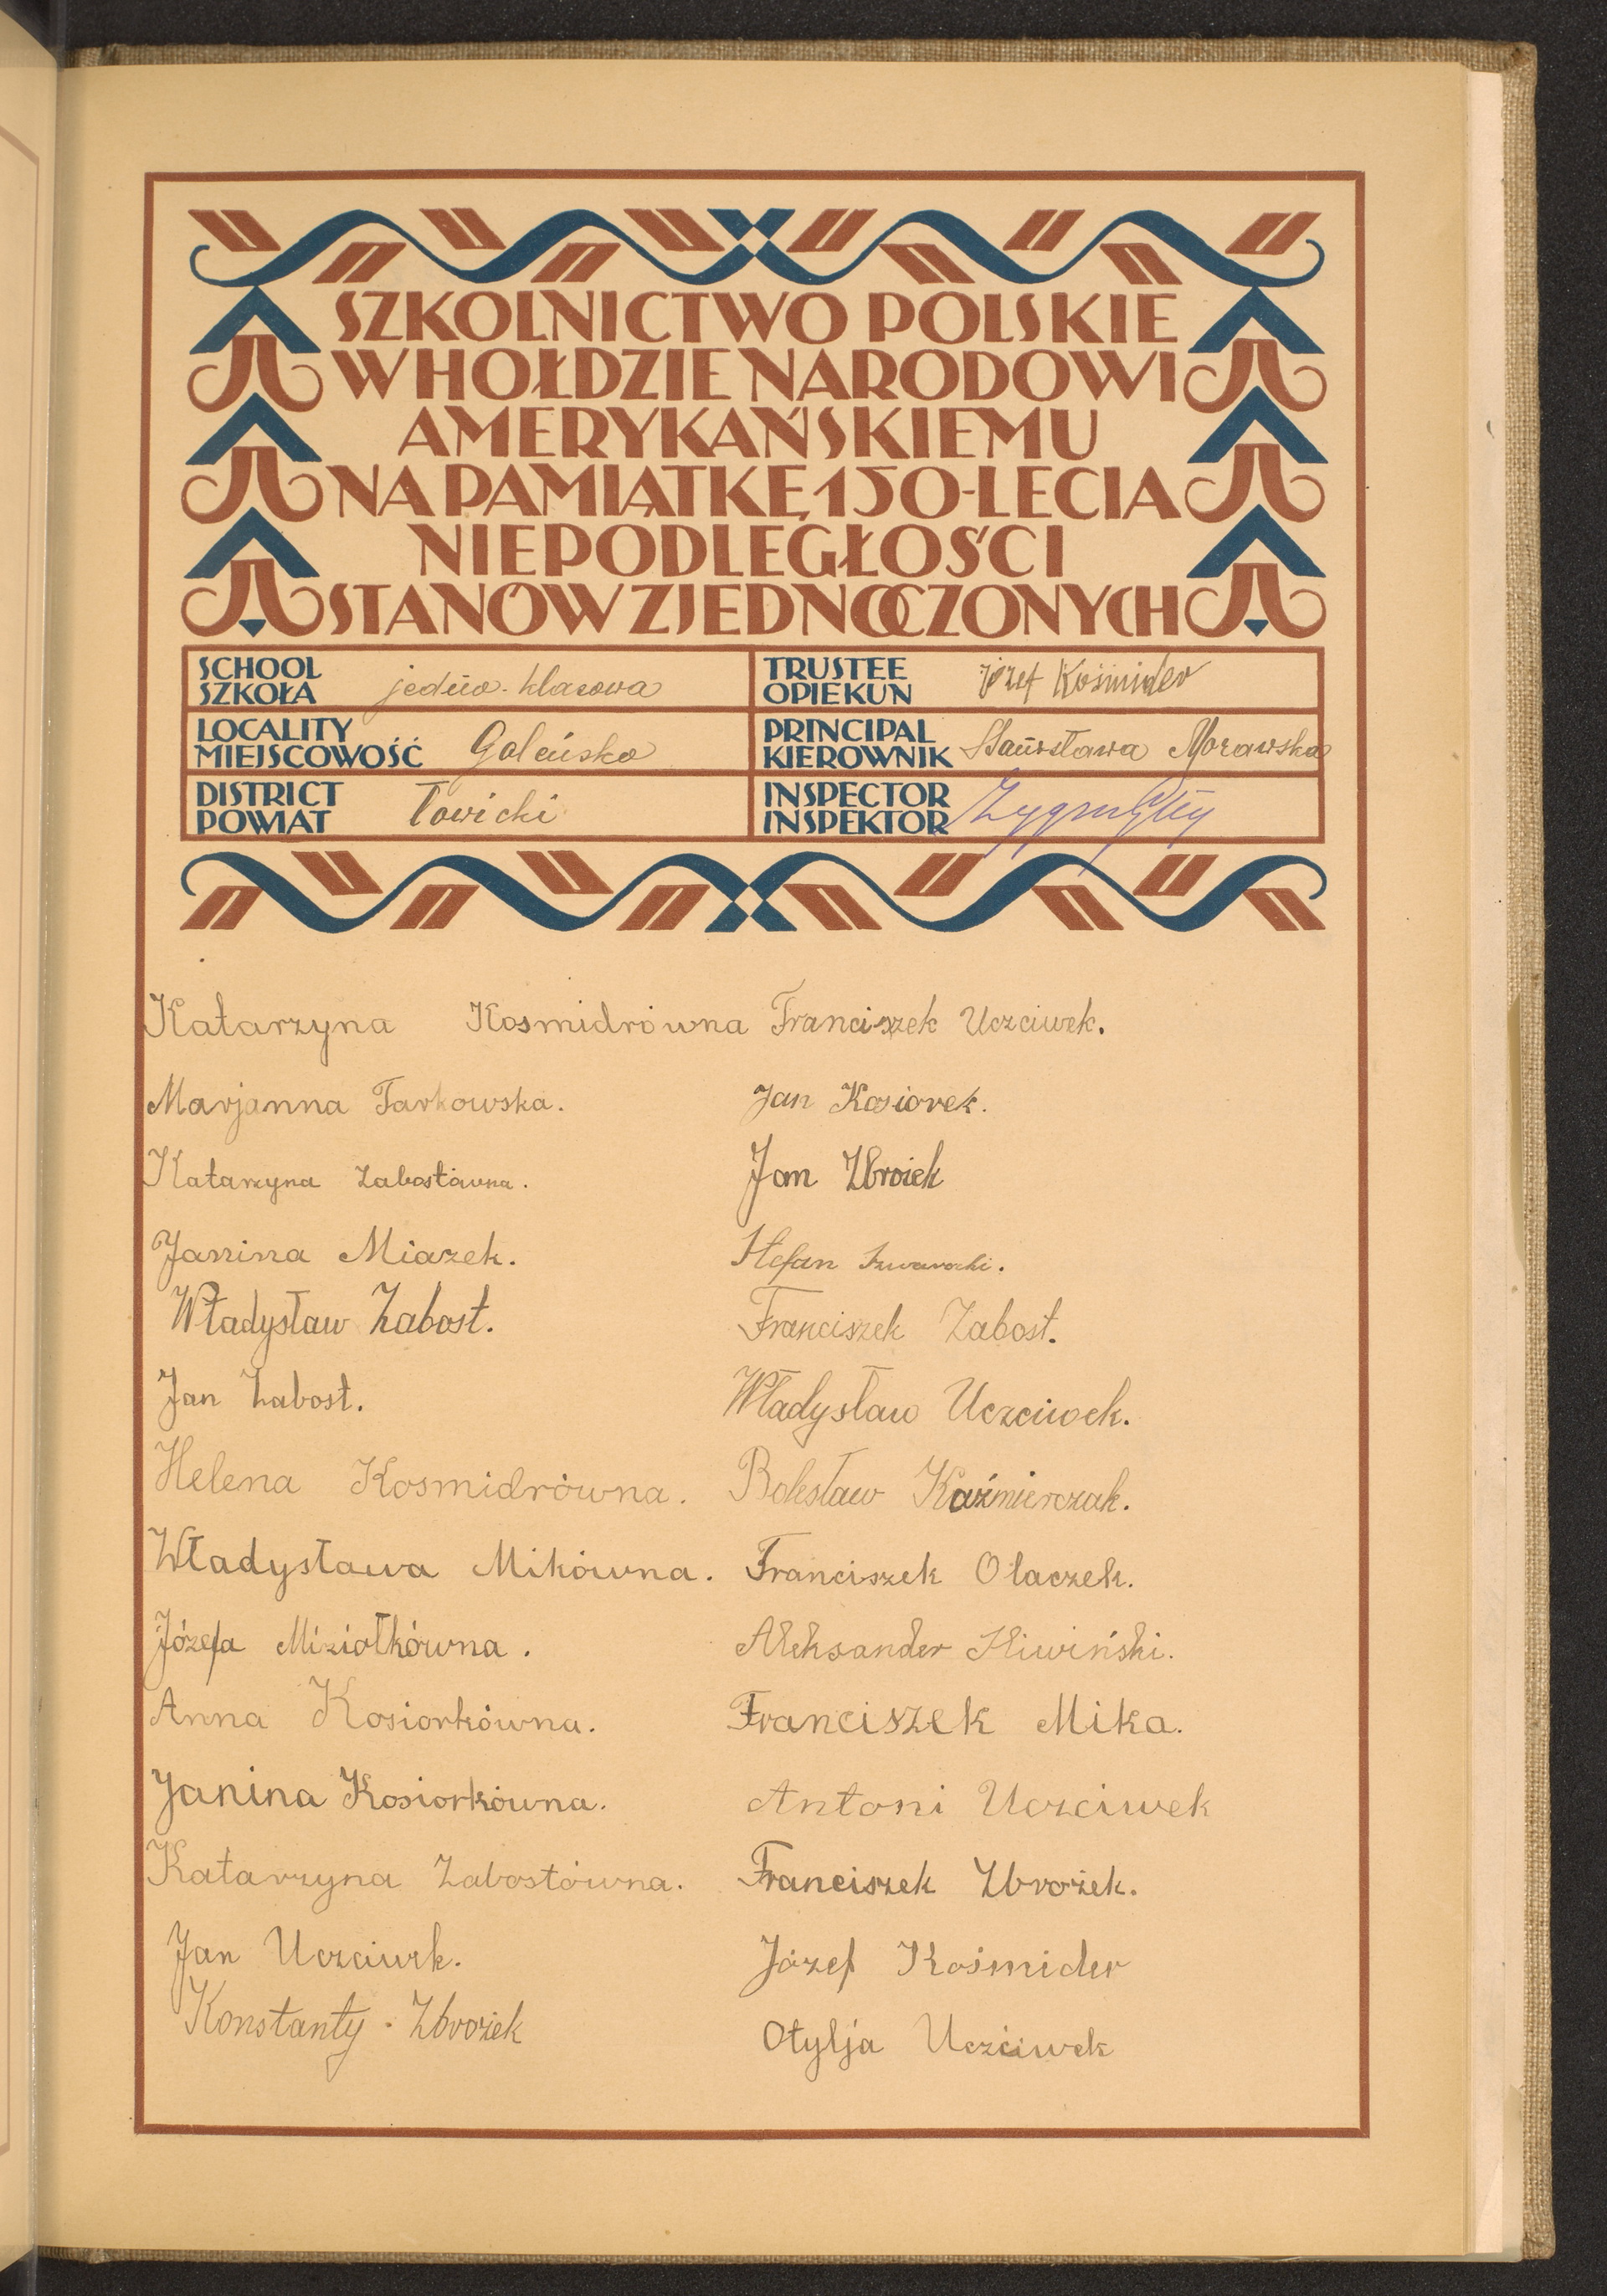 SZKOLNICTWO POLSKIE
W HOŁDZIE NARODOWI
AMERYKAŃSKIEMU
NA PAMIĄTKĘ 150-LECIA
NIEPODLEGŁOŚCI
STANÓW ZJEDNOCZONYCH
SCHOOL
SZKOŁA jedno-klasowa
TRUSTEE
OPIEKUN Józef Kośmider
LOCALITY
MIEJSCOWOŚĆ Goleńsko
PRINCIPAL
KIEROWNIK Stanisława Morawska
DISTRICT
POWIAT Łowicki
INSPECTOR
INSPEKTOR
Katarzyna Kosmidrówna
Marjanna Tarkowska.
Katarzyna Zabostówna.
Janina Miazek.
Władysław Zabost.
Jan Zabost.
Helena Kosmidrówna.
Władysława Mikówna.
Józefa Miziołkówna.
Anna Kosiorkówna.
Janina Kosiorkówna.
Katarzyna Zabostówna.
Jan Uczciwek.
Konstanty Zbrożek
Franciszek Uczciwek.
Jan Kosiorek.
Jan Zbroiek
Stefan
Franciszek Zabost.
Władysław Uczciwek.
Bolesław Kaźmierczak.
Franciszek Olaczek.
Aleksander Śliwiński.
Franciszek Mika.
Antoni Uczciwek
Franciszek Zbrożek.
Józef Kośmider
Otylja Uczciwek